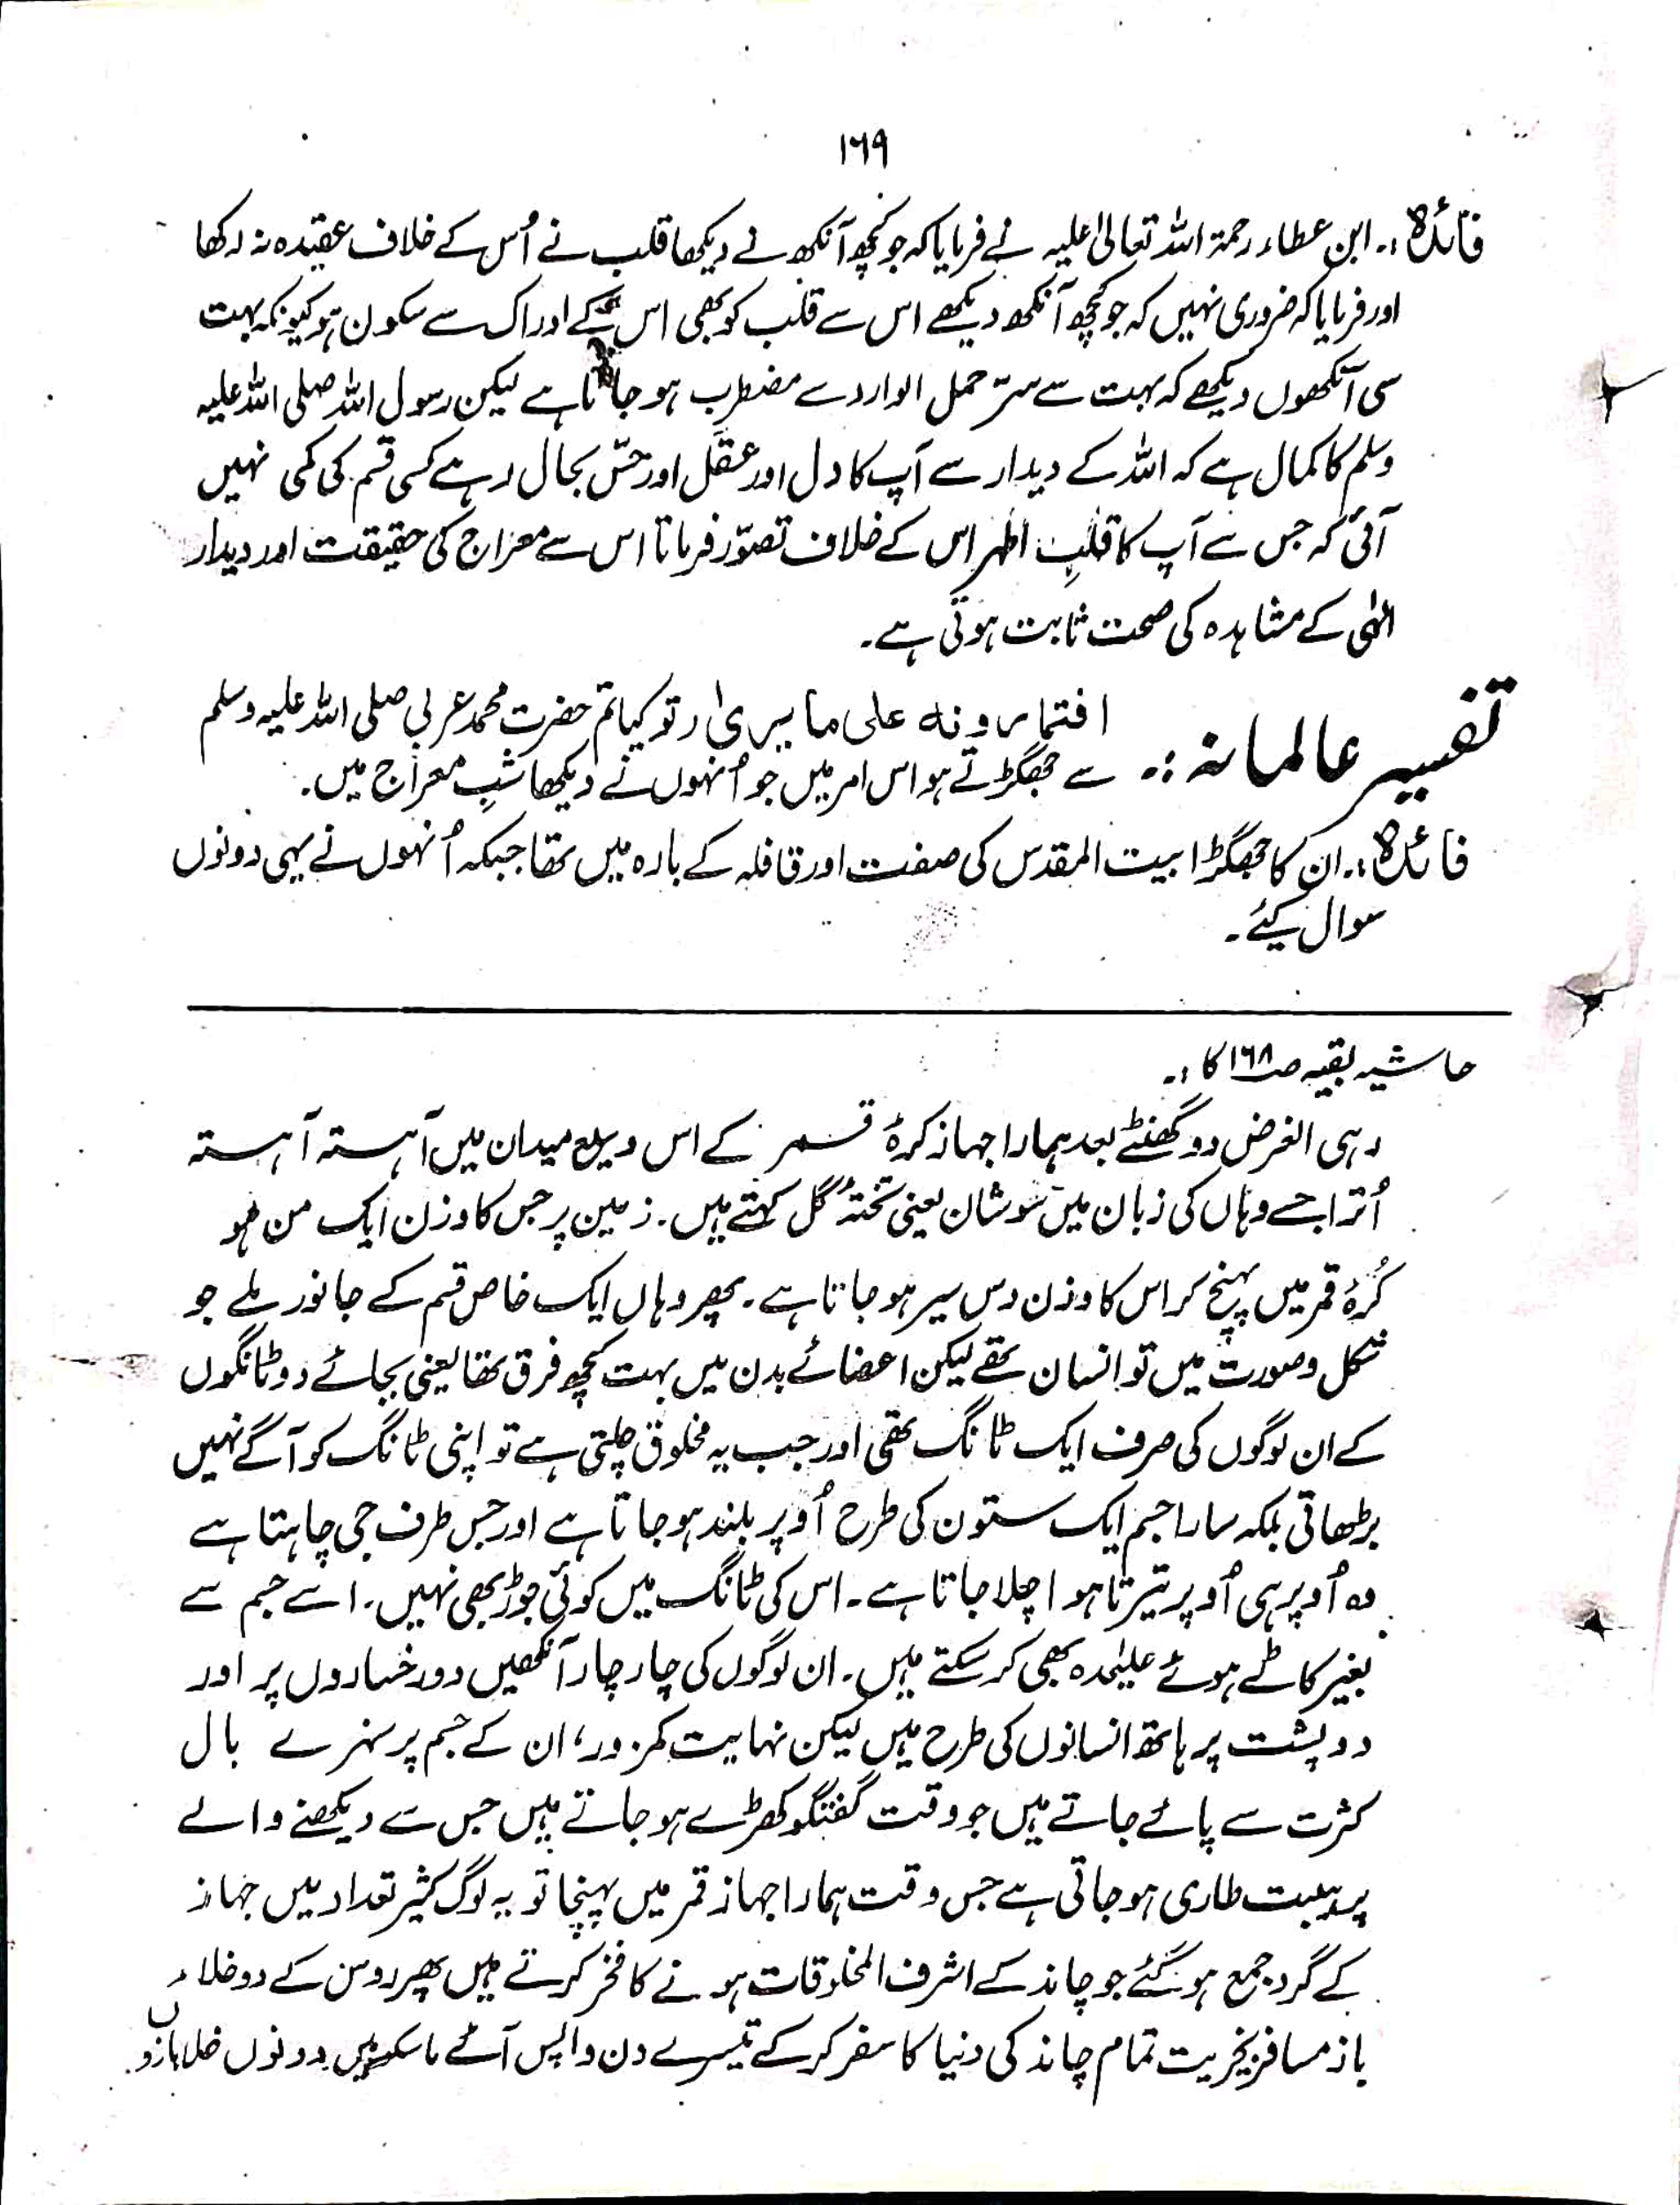 ۱۶۹
فائدہ :۔ ابن عطاء رحمۃ اللہ تعالیٰ علیہ نے فرمایا کہ جو کچھ آنکھ نے دیکھا قلب نے اُس کے خلاف عقیدہ نہ رکھا
اور فرمایا کہ ضروری نہیں کہ جو کچھ آنکھ دیکھے اس سے قلب کو بھی اس کے ادراک سے سکون ہو کیونکہ بہت
سی آنکھوں دیکھے کہ بہت سے ستر حمل الوارد سے مضطرب ہو جاتا ہے لیکن رسول اللہ صلی اللہ علیہ
وسلم کا کمال ہے کہ اللہ کے دیدار سے آپ کا دل اور عقل اور حسّ بحال رہے کسی قسم کی کمی نہیں
آئی کہ جس سے آپ کا قلبِ اطہر اس کے خلاف تصوّر فرماتا اس سے معراج کی حقیقت اور دیدار
الٰہی کے مشاہدہ کی صحت ثابت ہوتی ہے۔
تفسیر عالمانہ :۔ افتمارونہ علی ما یریٰ ر تو کیا تم حضرت محمد عربی صلی اللہ علیہ وسلم
سے جھگڑتے ہو اس امر میں جو اُنہوں نے دیکھا شبِ معراج میں۔
فائدہ :۔ ان کا جھگڑا بیت المقدس کی صفت اور قافلہ کے بارہ میں تھا جبکہ اُنہوں نے یہی دونوں
سوال کیئے۔
حاشیہ بقیہ صہ ۱۶۸ کا :۔
رہی الغرض دو گھنٹے بعد ہمارا جہاز کرۂ قمر کے اس وسیع میدان میں آہستہ آہستہ
اُترا جسے وہاں کی زبان میں سوشان یعنی تختۂ گل کہتے ہیں۔ زمین پر جس کا وزن ایک من ہو
کُرۂ قمر میں پہنچ کر اس کا وزن دس سیر ہو جاتا ہے۔ پھر وہاں ایک خاص قسم کے جانور ملے جو
شکل و صورت میں تو انسان تھے لیکن اعضائے بدن میں بہت کچھ فرق تھا یعنی بجائے دو ٹانگوں
کے ان لوگوں کی صرف ایک ٹانگ تھی اور جب یہ مخلوق چلتی ہے تو اپنی ٹانگ کو آگے نہیں
بڑھاتی بلکہ سارا جسم ایک ستون کی طرح اُوپر بلند ہو جاتا ہے اور جس طرف جی چاہتا ہے
وہ اُوپر ہی اُوپر تیرتا ہوا چلا جاتا ہے۔ اس کی ٹانگ میں کوئی جوڑ بھی نہیں۔ اسے جسم سے
بغیر کاٹے ہوئے علیٰحدہ بھی کر سکتے ہیں۔ ان لوگوں کی چار چار آنکھیں دو رخساروں پر اور
دو پشت پر ہاتھ انسانوں کی طرح ہیں لیکن نہایت کمزور، ان کے جسم پر سنہرے بال
کثرت سے پائے جاتے ہیں جو وقت گفتگو کھڑے ہو جاتے ہیں جس سے دیکھنے والے
پر ہیبت طاری ہو جاتی ہے جس وقت ہمارا جہاز قمر میں پہنچا تو یہ لوگ کثیر تعداد میں جہاز
کے گرد جمع ہو گئے جو چاند کے اشرف المخلوقات ہونے کا فخر کرتے ہیں پھر روس کے دو خلاء
باز مسافر بخیریت تمام چاند کی دنیا کا سفر کر کے تیسرے دن واپس آئے ماسکو میں دونوں خلابازوں